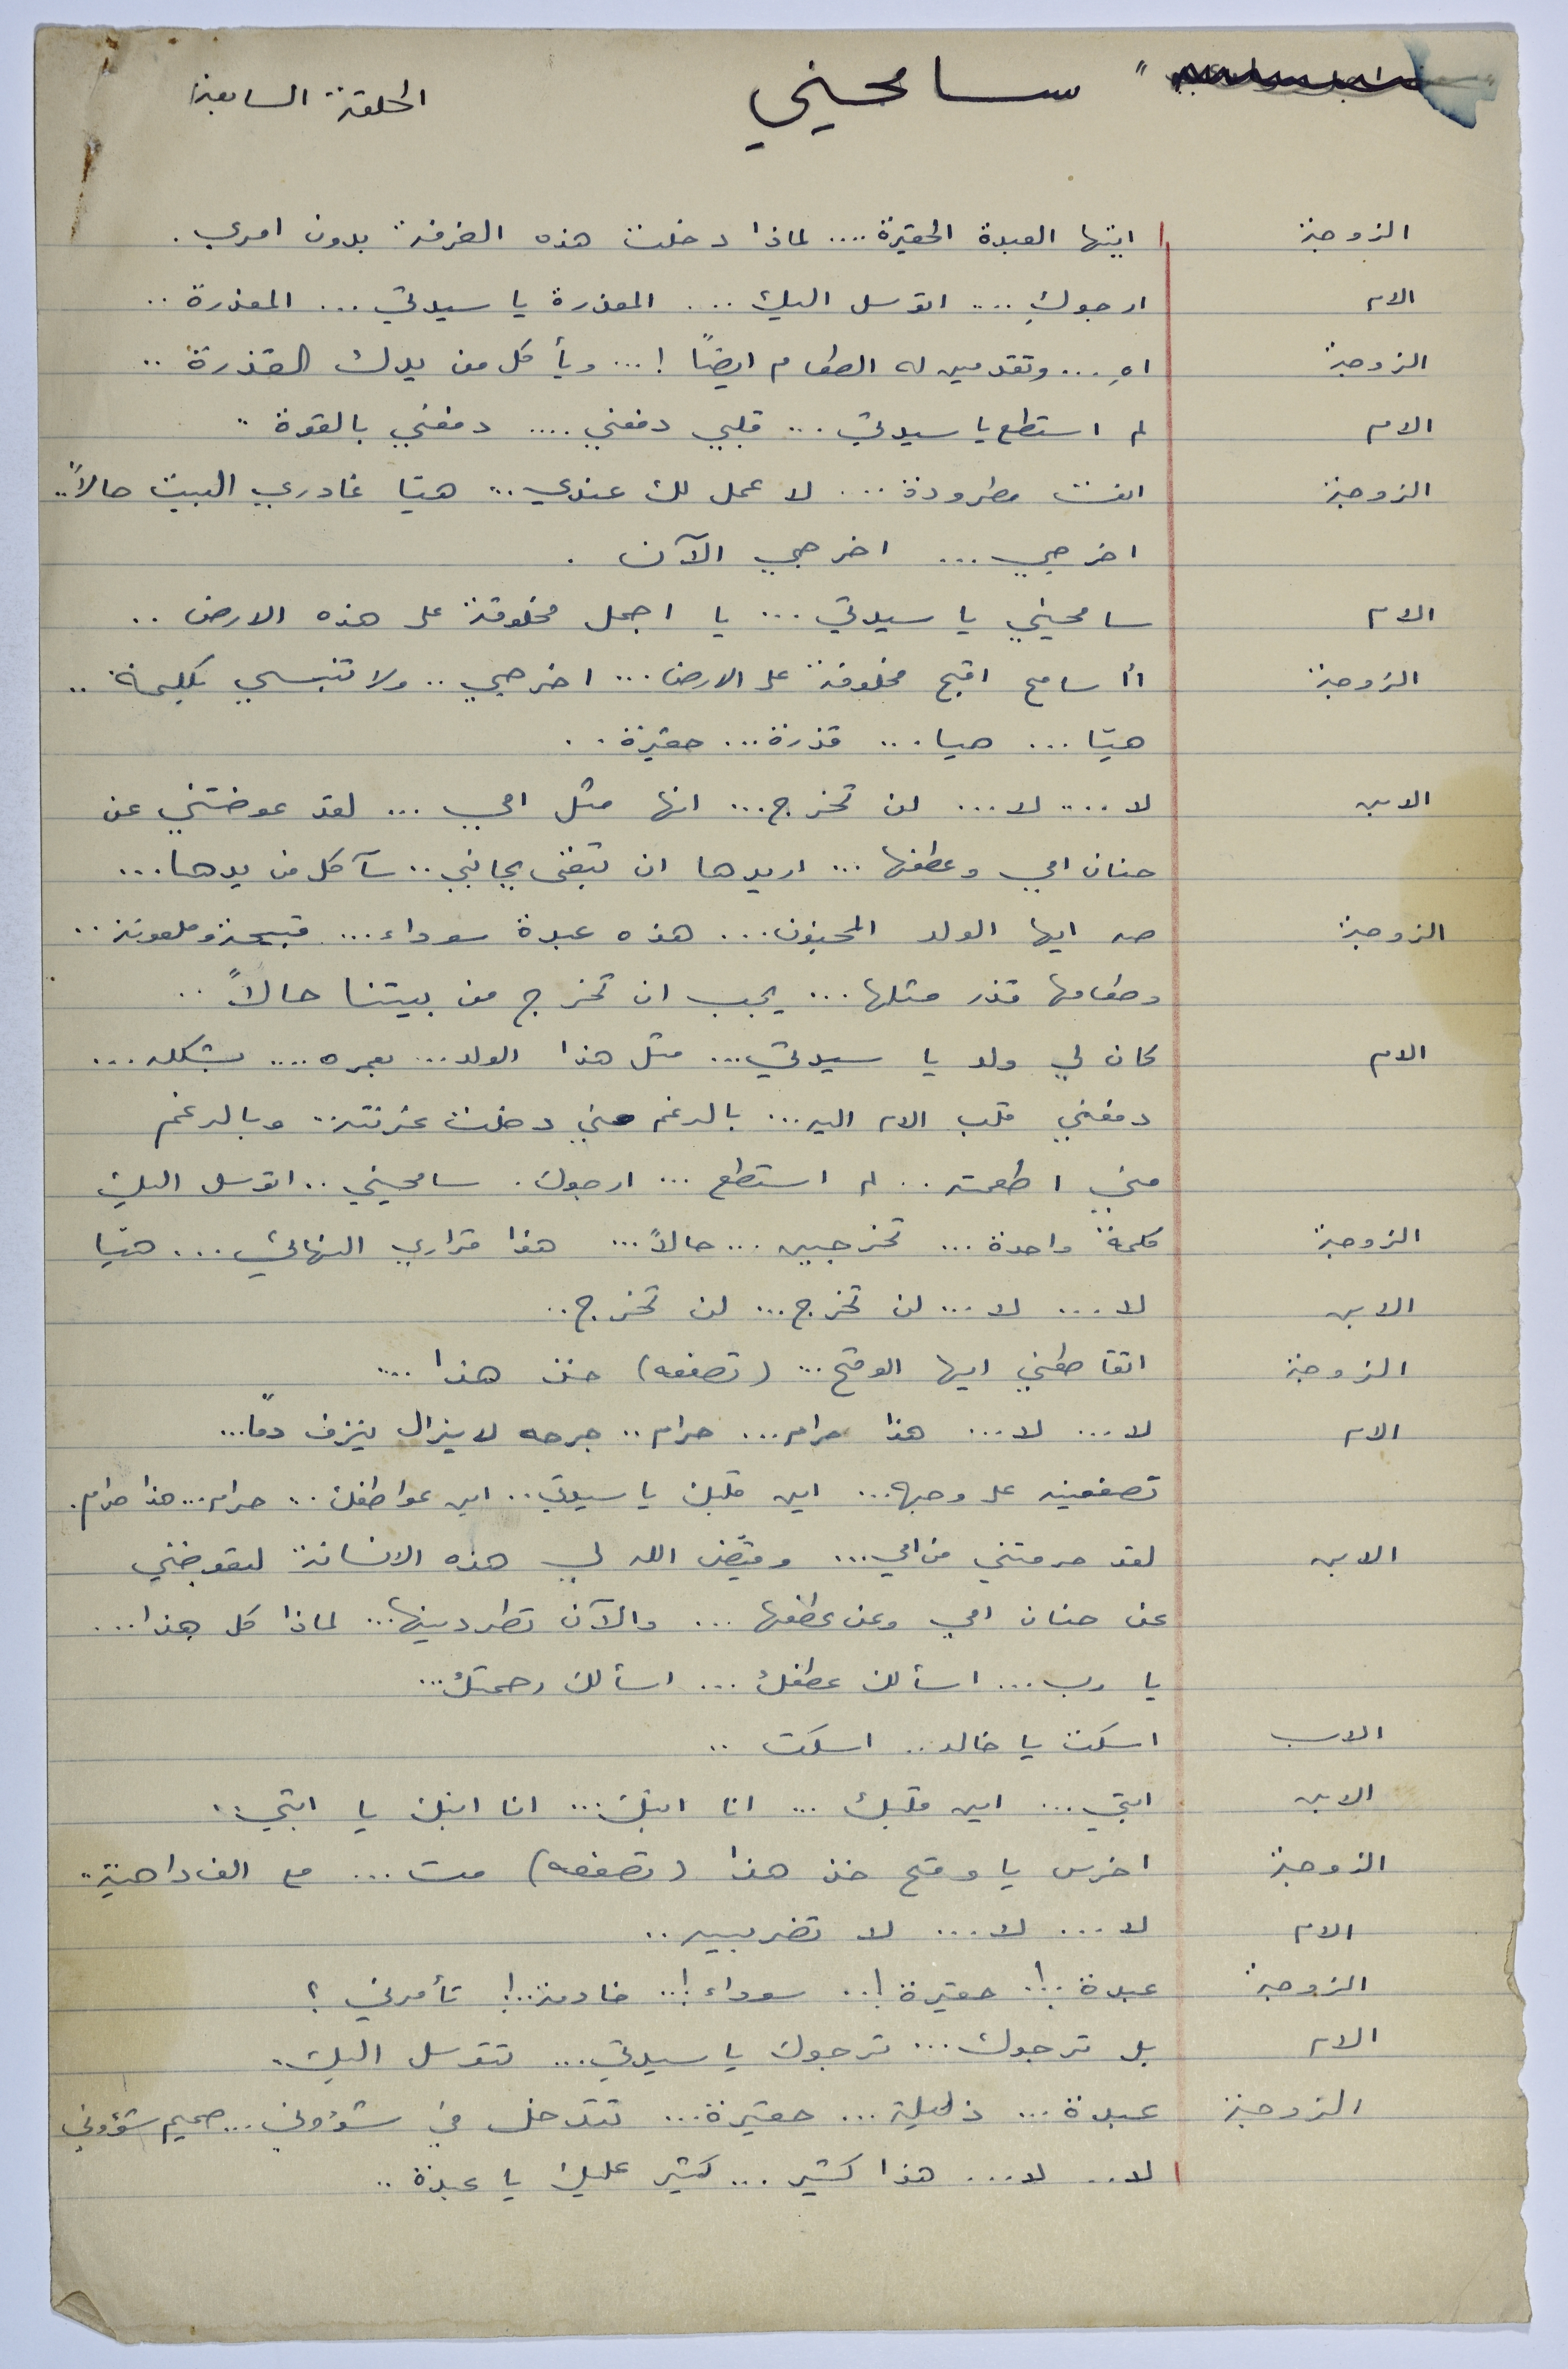 " سامحيني
الحلقة السابعة
الزوجة ايتها العبدة الحقيرة .... لماذا دخلت هذه الغرفة بدون امري .
الام ارجوكِ .... اتوسل اليك .... المعذرة يا سيدتي ... المعذرة ..
الزوجة اهِ ... وتقدمين له الطعام ايضاً ! ... ويأكل من يدك القذرة ..
الام لم استطع يا سيدتي ... قلبي دفعني .... دفعني بالقوة ..
الزوجة انت مطرودة ... لا عمل لك عندي ... هيّا غادري البيت حالاً ..
اخرجي ... اخرجي الآن .
الام سامحيني يا سيدتي ... يا اجمل مخلوقة على هذه الارض ..
الزوجة أأسامح اقبح مخلوقة على الارض ... اخرجي .. ولا تنبسي بكلمة ..
هيّا ... هيا ... قذرة ... حقيرة ..
الابن لا .... لا ... لن تخرج ... انها مثل امي ... لقد عوضتني عن
حنان امي وعطفها ... اريدها ان تبقى بجانبي .. سآكل من يدها ...
الزوجة صه ايها الولد المجنون ... هذه عبدة سوداء ... قبيحة وملعونة ..
وطعامها قذر مثلها ... يجب ان تخرج من بيتنا حالاً ..
الام كان لي ولد يا سيدتي ... مثل هذا الولد ... بعمره .... بشكله ...
دفعني قلب الام اليه ... بالرغم مني دخلت غرفته .. وبالرغم
مني اطعمته .. لم استطع ... ارجوك . سامحيني .. اتوسل اليك
الزوجة كلمة واحدة ... تخرجين ... حالاً ... هذا قراري النهائي ... هيّا
الابن لا ... لا ... لن تخرج ... لن تخرج ..
الزوجة اتقاطعني ايها الوقح ... ( تصفعه ) خذ هذا ....
الام لا ... لا ... هذا حرام ... حرام .. جرحه لا يزال ينزف دماً ...
تصفعينه على وجهه ... اين قلبك يا سيدتي .. اين عواطفك .. حرام ... هذا حرام .
الابن لقد حرمتني من امي ... وقيّض الله لي هذه الانسانة لتعوضني
عن حنان امي وعن عطفها ... والآن تطردينها ... لماذا كل هذا ...
يا رب ... اسألك عطفك ... اسألك رحمتك ...
الاب اسكت يا خالد .. اسكت ..
الابن ابتي ... اين قلبك ... انا ابنك ... انا ابنك يا ابتي ..
الزوجة اخرس يا وقح خذ هذا ( تصفعه ) مت ... مع الف داهية ..
الام لا ... لا ... لا تضربيه ..
الزوجة عبدة ..! حقيرة ! .. سوداء ! .. خادمة ..! تأمرني ؟
الام بل ترجوك ... ترجوك يا سيدتي ... تتوسل اليك .
الزوجة عبدة ... ذليلة ... حقيرة ... تتدخل في شؤوني ... صميم شؤوني
لا .. لا ... هذا كثير ... كثير عليك يا عبدة ..